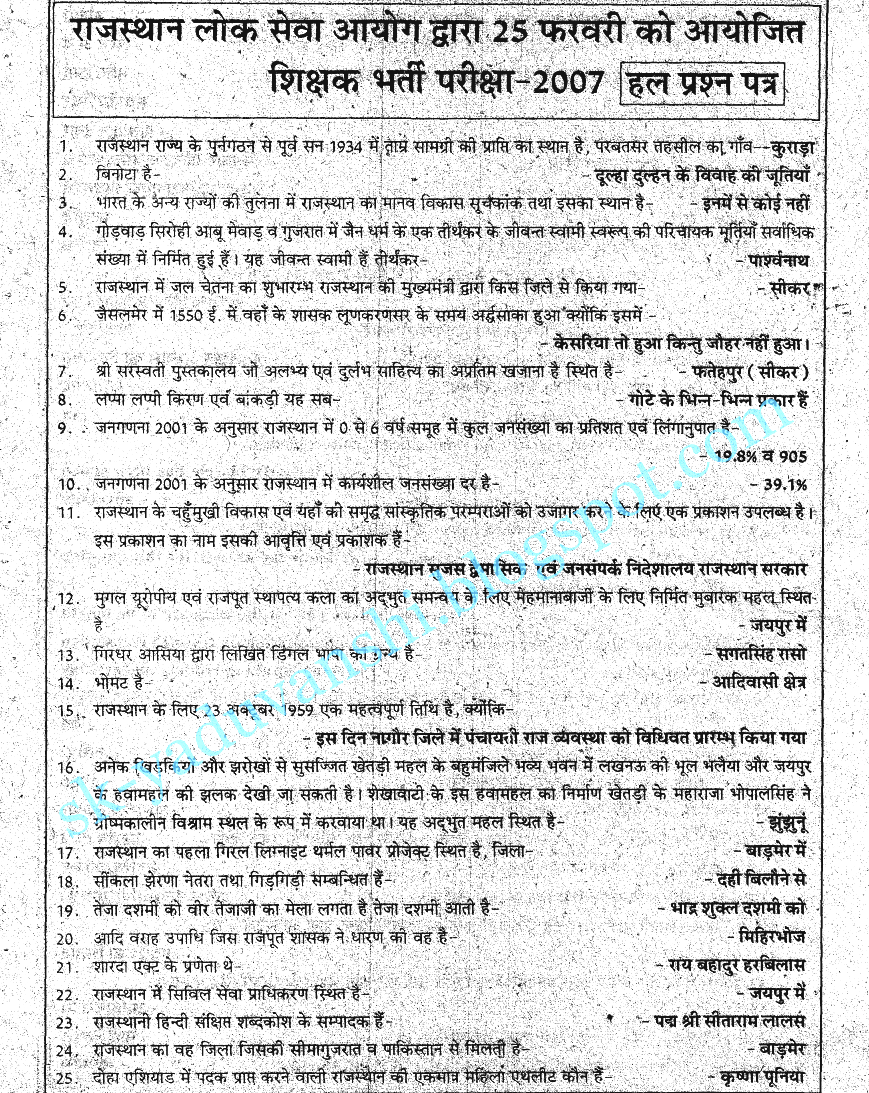 राजस्थान लोक सेवा आयोग द्वारा 25 फरवरी को आयोजित
शिक्षक भर्ती परीक्षा-2007 हल प्रश्न पत्र
1. राजस्थान राज्य के पुर्नगठन से पूर्व सन 1934 में ताम्र सामग्री की प्राप्ति का स्थान है, परबतसर तहसील का गाँव--कुराड़ा
2. बिनोटा है- - दूल्हा दुल्हन के विवाह की जूतियाँ
3. भारत के अन्य राज्यों की तुलना में राजस्थान का मानव विकास सूचकांक तथा इसका स्थान है- - इनमें से कोई नहीं
4. गोड़वाड़ सिरोही आबू मेवाड़ व गुजरात में जैन धर्म के एक तीर्थंकर के जीवन्त स्वामी स्वरूप की परिचायक मूर्तियाँ सर्वाधिक
संख्या में निर्मित हुई हैं। यह जीवन्त स्वामी हैं तीर्थंकर- - पार्श्वनाथ
5. राजस्थान में जल चेतना का शुभारम्भ राजस्थान की मुख्यमंत्री द्वारा किस जिले से किया गया- - सीकर
6. जैसलमेर में 1550 ई. में वहाँ के शासक लूणकरणसर के समय अर्द्धसाका हुआ क्योंकि इसमें -
- केसरिया तो हुआ किन्तु जौहर नहीं हुआ।
7. श्री सरस्वती पुस्तकालय जो अलभ्य एवं दुर्लभ साहित्य का अप्रतिम खजाना है स्थित है- - फतेहपुर ( सीकर )
8. लप्पा लप्पी किरण एवं बांकड़ी यह सब- - गोटे के भिन्न-भिन्न प्रकार हैं
9. जनगणना 2001 के अनुसार राजस्थान में 0 से 6 वर्ष समूह में कुल जनसंख्या का प्रतिशत एवं लिंगानुपात है-
- 19.8% व 905
10. जनगणना 2001 के अनुसार राजस्थान में कार्यशील जनसंख्या दर है- - 39.1%
11. राजस्थान के चहुँमुखी विकास एवं यहाँ की समृद्ध सांस्कृतिक परम्पराओं को उजागर करने के लिए एक प्रकाशन उपलब्ध है।
इस प्रकाशन का नाम इसकी आवृत्ति एवं प्रकाशक हैं-
- राजस्थान सुजस द्वैमासिक एवं जनसंपर्क निदेशालय राजस्थान सरकार
12. मुगल यूरोपीय एवं राजपूत स्थापत्य कला का अद्भुत समन्वय के लिए मेहमानाबाजी के लिए निर्मित मुबारक महल स्थित
है - जयपुर में
13. गिरधर आसिया द्वारा लिखित डिंगल भाषा का ग्रन्थ है- - सगतसिंह रासो
14. भोमट है- - आदिवासी क्षेत्र
15. राजस्थान के लिए 23 अक्टूबर 1959 एक महत्वपूर्ण तिथि है, क्योंकि-
- इस दिन नागौर जिले में पंचायती राज व्यवस्था को विधिवत प्रारम्भ किया गया
16. अनेक खिड़कियों और झरोखों से सुसज्जित खेतड़ी महल के बहुमंजिले भव्य भवन में लखनऊ की भूल भलैया और जयपुर
के हवामहल की झलक देखी जा सकती है। शेखावाटी के इस हवामहल का निर्माण खेतड़ी के महाराजा भोपालसिंह ने
ग्रीष्मकालीन विश्राम स्थल के रूप में करवाया था। यह अद्भुत महल स्थित है- - झुंझुनूं
17. राजस्थान का पहला गिरल लिग्नाइट थर्मल पावर प्रोजेक्ट स्थित है, जिला- - बाड़मेर में
18. सींकला झेरणा नेतरा तथा गिड़गिड़ी सम्बन्धित हैं- - दही बिलौने से
19. तेजा दशमी को वीर तेजाजी का मेला लगता है तेजा दशमी आती है- - भाद्र शुक्ल दशमी को
20. आदि वराह उपाधि जिस राजपूत शासक ने धारण की वह है- - मिहिरभोज
21. शारदा एक्ट के प्रणेता थे- - राय बहादुर हरबिलास
22. राजस्थान में सिविल सेवा प्राधिकरण स्थित है- - जयपुर में
23. राजस्थानी हिन्दी संक्षिप्त शब्दकोश के सम्पादक हैं- - पद्म श्री सीताराम लालस
24. राजस्थान का वह जिला जिसकी सीमागुजरात व पाकिस्तान से मिलती है- - बाड़मेर
25. दोहा एशियाड में पदक प्राप्त करने वाली राजस्थान की एकमात्र महिला एथलीट कौन हैं- - कृष्णा पूनिया
sk-yaduvanshi.blogspot.com